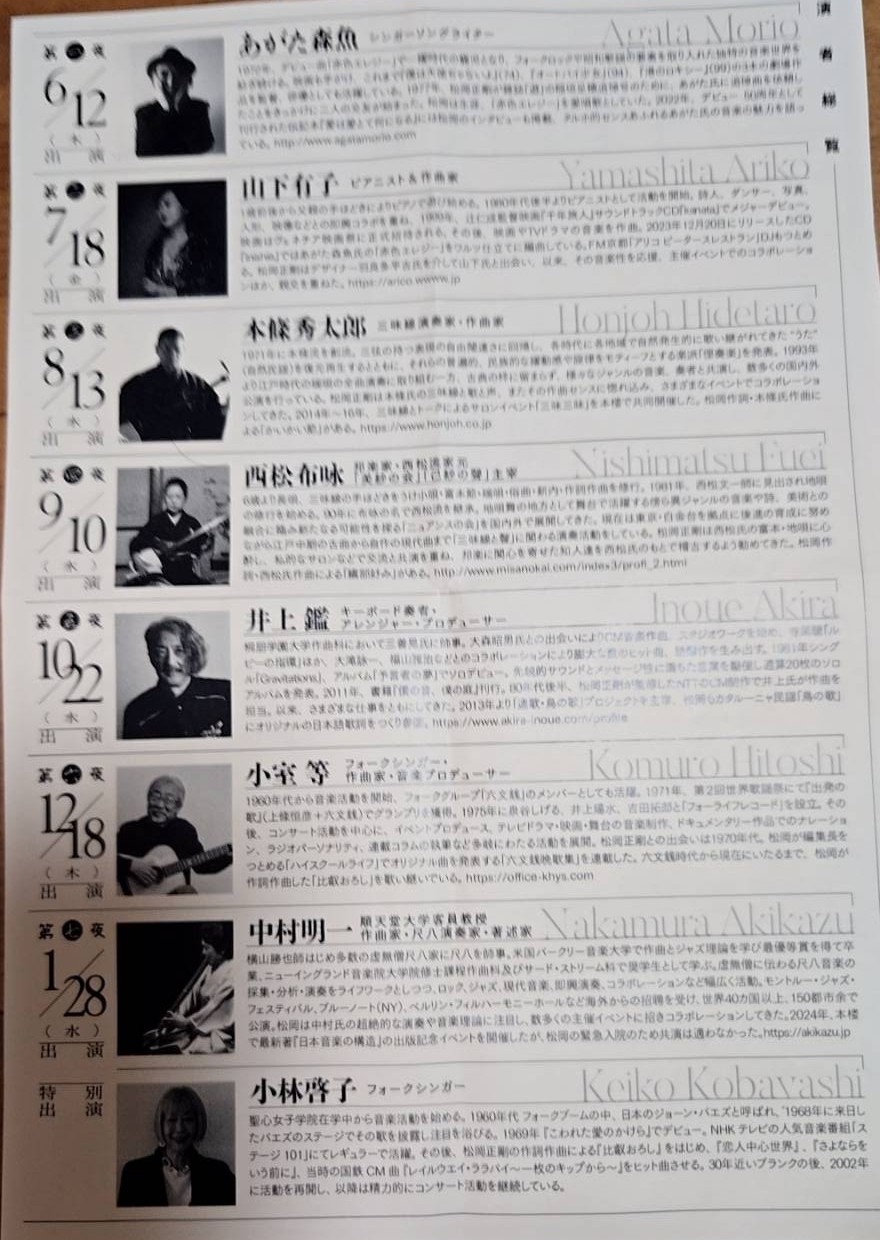 演者総覧
第一夜
6/12
（木）
出演
あがた森魚 シンガーソングライター
Agata Morio
ている。http://www.agatamorio.com
第二夜
7/18
（金）
出演
山下有子 ピアニスト＆作曲家
Yamashita Ariko
映画はヴェネチア映画祭に正式招待される。その後、映画やTVドラマの音楽を作曲。2023年12月20日にリリースしたCD
る。松岡正剛はデザイナー羽良多平吉氏を介して山下氏と出会い、以来、その音楽性を応援、主催イベントでのコラボレーショ
ンほか、親交を重ねた。
第三夜
8/13
（水）
出演
本條秀太郎 三味線演奏家・作曲家
Honjoh Hidetaro
（自然民謡）を復元再生するとともに、それらの普遍的、民族的な躍動感や旋律をモティーフとする楽派「俚奏楽」を発表。1993年
より江戸時代の端唄の全曲演奏に取り組む一方、古典の枠に留まらず、様々なジャンルの音楽、奏者と共演し、数多くの国内外
公演を行っている。松岡正剛は本條氏の三味線と歌と声、またその作曲センスに惚れ込み、さまざまなイベントでコラボレーショ
ンしてきた。2014年〜16年、三味線とトークによるサロンイベント「三味三昧」を本楼で共同開催した。松岡作詞・本條氏作曲に
よる「かいかい節」がある。https://www.honjoh.co.jp
第四夜
9/10
（水）
出演
西松布咏 邦楽家・西松流家元
「美紗の会」「己紗の聲」主宰
Nishimatsu Fuei
6歳より長唄、三味線の手ほどきをうけ小唄・富本節・端唄・俗曲・新内・作詞作曲を修行。1981年、西松文一師に見出され地唄
の修行を始める。90年に布咏の名で西松流を継承。地唄舞の地方として舞台で活躍する傍ら異ジャンルの音楽や詩、美術との
融合に踏み新たなる可能性を探る「ニュアンスの会」を国内外で展開してきた。現在は東京・白金台を拠点に後進の育成に努め
ながら江戸中期の古曲から自作の現代曲まで「三味線と聲」に関わる演奏活動をしている。松岡正剛は西松氏の富本・地唄に心
酔し、私的なサロンなどで交流と共演を重ね、邦楽に関心を寄せた知人達を西松氏のもとで稽古するよう勧めてきた。松岡作
詞・西松氏作曲による「織部好み」がある。http://www.misanokai.com/index3/profi_2.html
第五夜
10/22
（水）
出演
井上鑑 キーボード奏者・
アレンジャー・プロデューサー
Inoue Akira
桐朋学園大学作曲科において三善晃氏に師事。大森昭男氏との出会いによりCM音楽作曲、スタジオワークを始め、寺尾聰「ル
ビーの指環」ほか、大滝詠一、福山雅治などとのコラボレーションにより膨大な数のヒット曲、話題作を生み出す。1981年シング
ル「Gravitations」、アルバム「予言者の夢」でソロデビュー。先鋭的サウンドとメッセージ性に満ちた言葉を駆使し通算20枚のソロ
アルバムを発表。2011年、書籍「僕の音、僕の庭」刊行。80年代後半、松岡正剛が監修したNTTのCM制作で井上氏が作曲を
担当。以来、さまざまな仕事をともにしてきた。2013年より「連歌・鳥の歌」プロジェクトを主宰、松岡もカタルーニャ民謡「鳥の歌」
にオリジナルの日本語歌詞をつくり参画。https://www.akira-inoue.com/profile
第六夜
12/18
（木）
出演
小室等 フォークシンガー・
作曲家・音楽プロデューサー
Komuro Hitoshi
1960年代から音楽活動を開始、フォークグループ「六文銭」のメンバーとしても活躍。1971年、第2回世界歌謡祭にて「出発の
歌」（上條恒彦＋六文銭）でグランプリを獲得。1975年に泉谷しげる、井上陽水、吉田拓郎と「フォーライフレコード」を設立。その
後、コンサート活動を中心に、イベントプロデュース、テレビドラマ・映画・舞台の音楽制作、ドキュメンタリー作品でのナレーショ
ン、ラジオパーソナリティ、連載コラムの執筆など多岐にわたる活動を展開。松岡正剛との出会いは1970年代。松岡が編集長を
つとめる「ハイスクールライフ」でオリジナル曲を発表する「六文銭映歌集」を連載した。六文銭時代から現在にいたるまで、松岡が
作詞作曲した「比叡おろし」を歌い継いでいる。https://office-khys.com
第七夜
1/28
（水）
出演
中村明一 順天堂大学客員教授
作曲家・尺八演奏家・著述家
Nakamura Akikazu
横山勝也師はじめ多数の虚無僧尺八家に尺八を師事。米国バークリー音楽大学で作曲とジャズ理論を学び最優等賞を得て卒
業、ニューイングランド音楽院大学院修士課程作曲科及びサード・ストリーム科で奨学生として学ぶ。虚無僧に伝わる尺八音楽の
採集・分析・演奏をライフワークとしつつ、ロック、ジャズ、現代音楽、即興演奏、コラボレーションなど幅広く活動。モントルー・ジャズ・
フェスティバル、ブルーノート(NY)、ベルリン・フィルハーモニーホールなど海外からの招聘を受け、世界40カ国以上、150都市余で
公演。松岡は中村氏の超絶的な演奏や音楽理論に注目し、数多くの主催イベントに招きコラボレーションしてきた。2024年、本楼
で最新著『日本音楽の構造』の出版記念イベントを開催したが、松岡の緊急入院のため共演は適わなかった。https://akikazu.jp
特別
出演
小林啓子 フォークシンガー
Keiko Kobayashi
聖心女子学院在学中から音楽活動を始める。1960年代 フォークブームの中、日本のジョーン・バエズと呼ばれ、1968年に来日し
たバエズのステージでその歌を披露し注目を浴びる。1969年『こわれた愛のかけら』でデビュー。NHKテレビの人気音楽番組「ス
テージ101」にてレギュラーで活躍。その後、松岡正剛の作詞作曲による『比叡おろし』をはじめ、『恋人中心世界』、『さよならを
いう前に』、当時の国鉄CM曲『レイルウエイ・ララバイ〜一枚のキップから〜』をヒット曲させる。30年近いブランクの後、2002年
に活動を再開し、以降は精力的にコンサート活動を継続している。